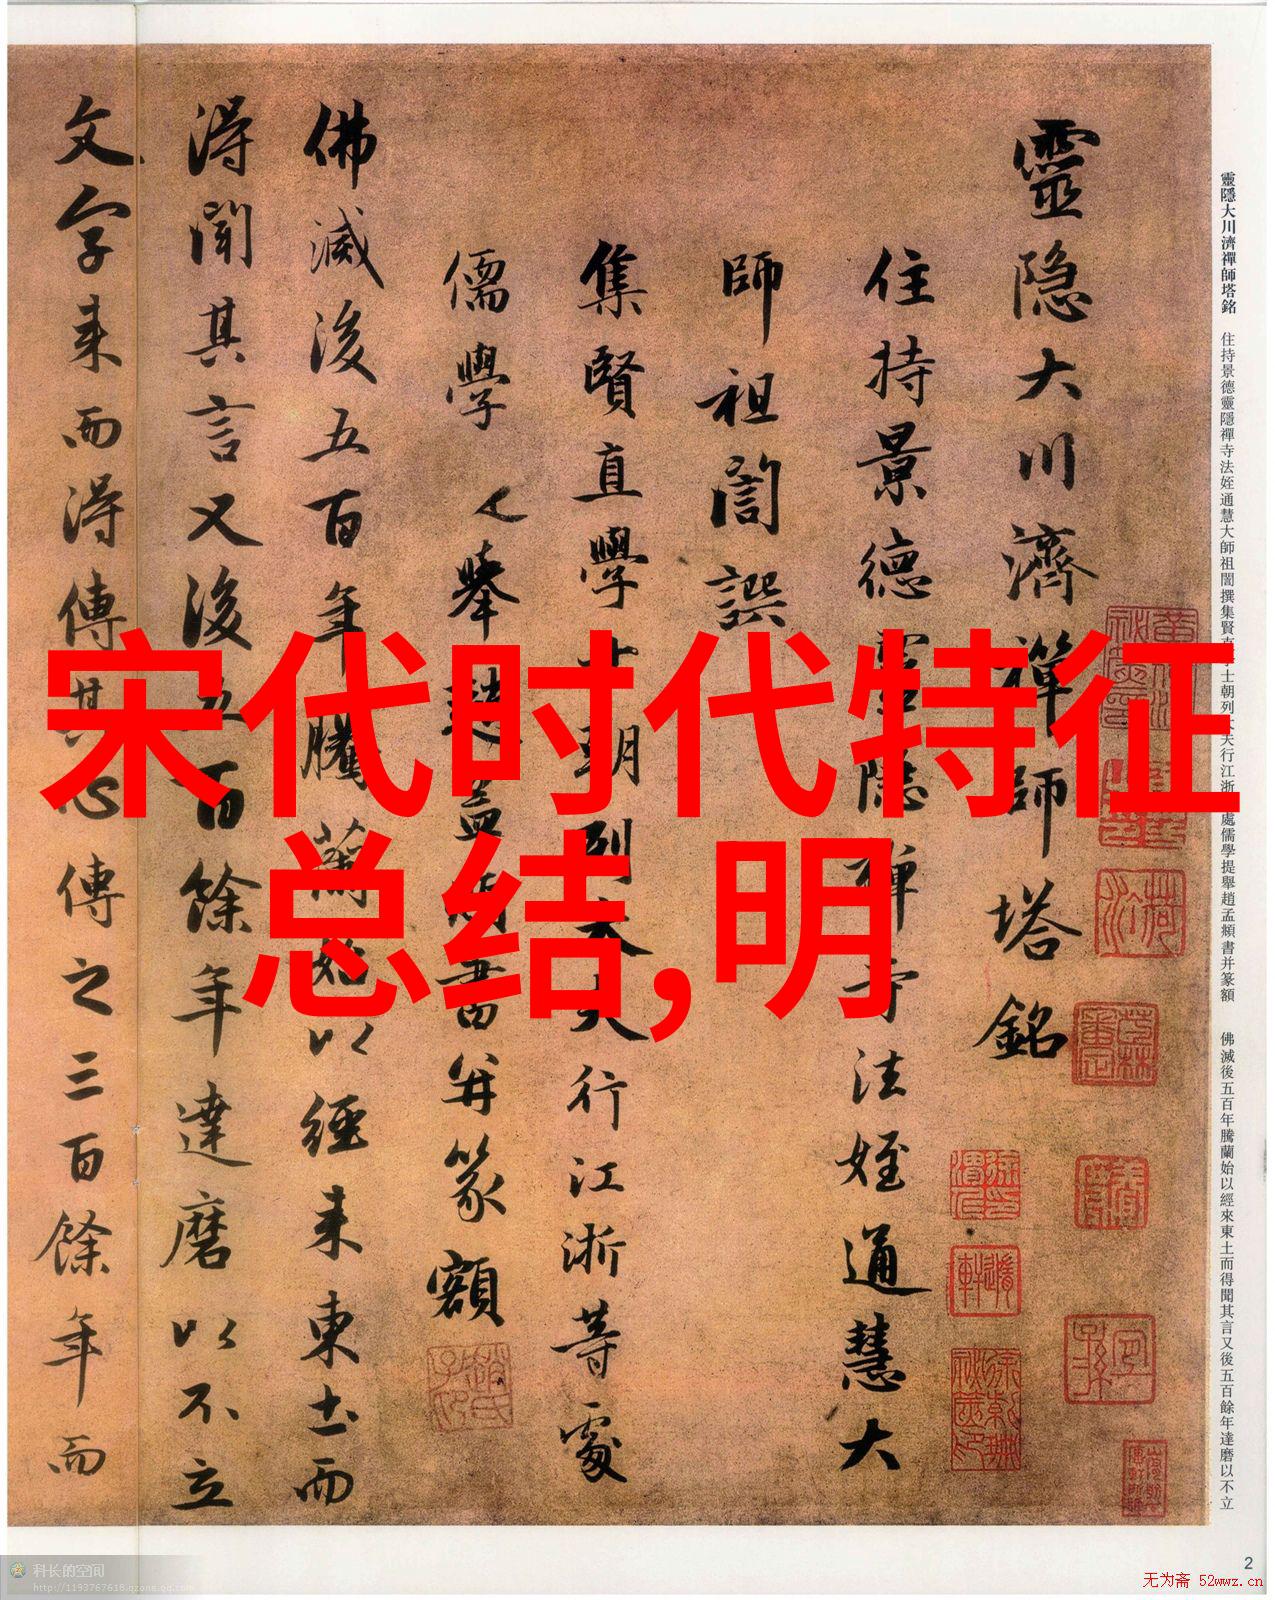 宋代时代特征
总结,明
靈隱大川濟禪師塔銘 住持景德靈隱禪寺法姪通慧大師祖誾撰集賢直學士朝列大夫行江浙等處儒學提舉趙孟頫書并篆額 佛滅後五百年騰蘭始以經來東土而得聞其言又後五百餘年達磨以不立
靈隐大川濟禪師塔銘
住持景德靈隐禪寺法姪通慧大
師祖誾譔
集賢直學士朝列大夫行江浙等處
儒學提舉趙孟頫書并篆額
佛滅後五百年騰蘭始以經来東土而
得聞其言又後五百餘年達磨以不立
文字来而得傳其心傳之三百餘年而
2
科长的空间
http://1193767618.qzone.qq.com
无为斋 52wwz.cn